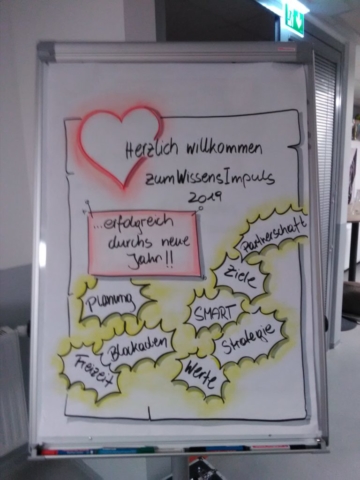 Herzlich willkommen
zum WissensImpuls
2019
...erfolgreich
durchs neue
Jahr!!
Partnerschaft
Ziele
Planung
SMART
Strategie
Blockaden
Freizeit
Werte